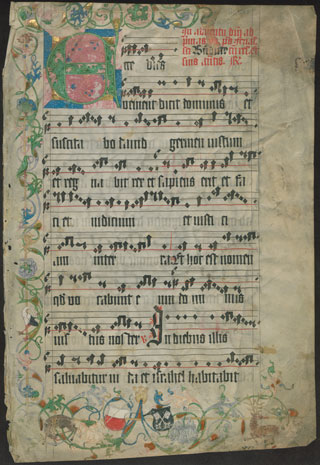 In adventu dni ad
Ecce dies
veniunt dicit dominus et
suscita bo david germen iustum
et reg na bit rex et sapiens erit et fa
ci et iudicium et iusti ci
am in ter ra et hoc est nomen
qd vo cabunt e um do mi nus
ius tus nos ter V In diebus illis
salvabitur iu da et israhel habitabit